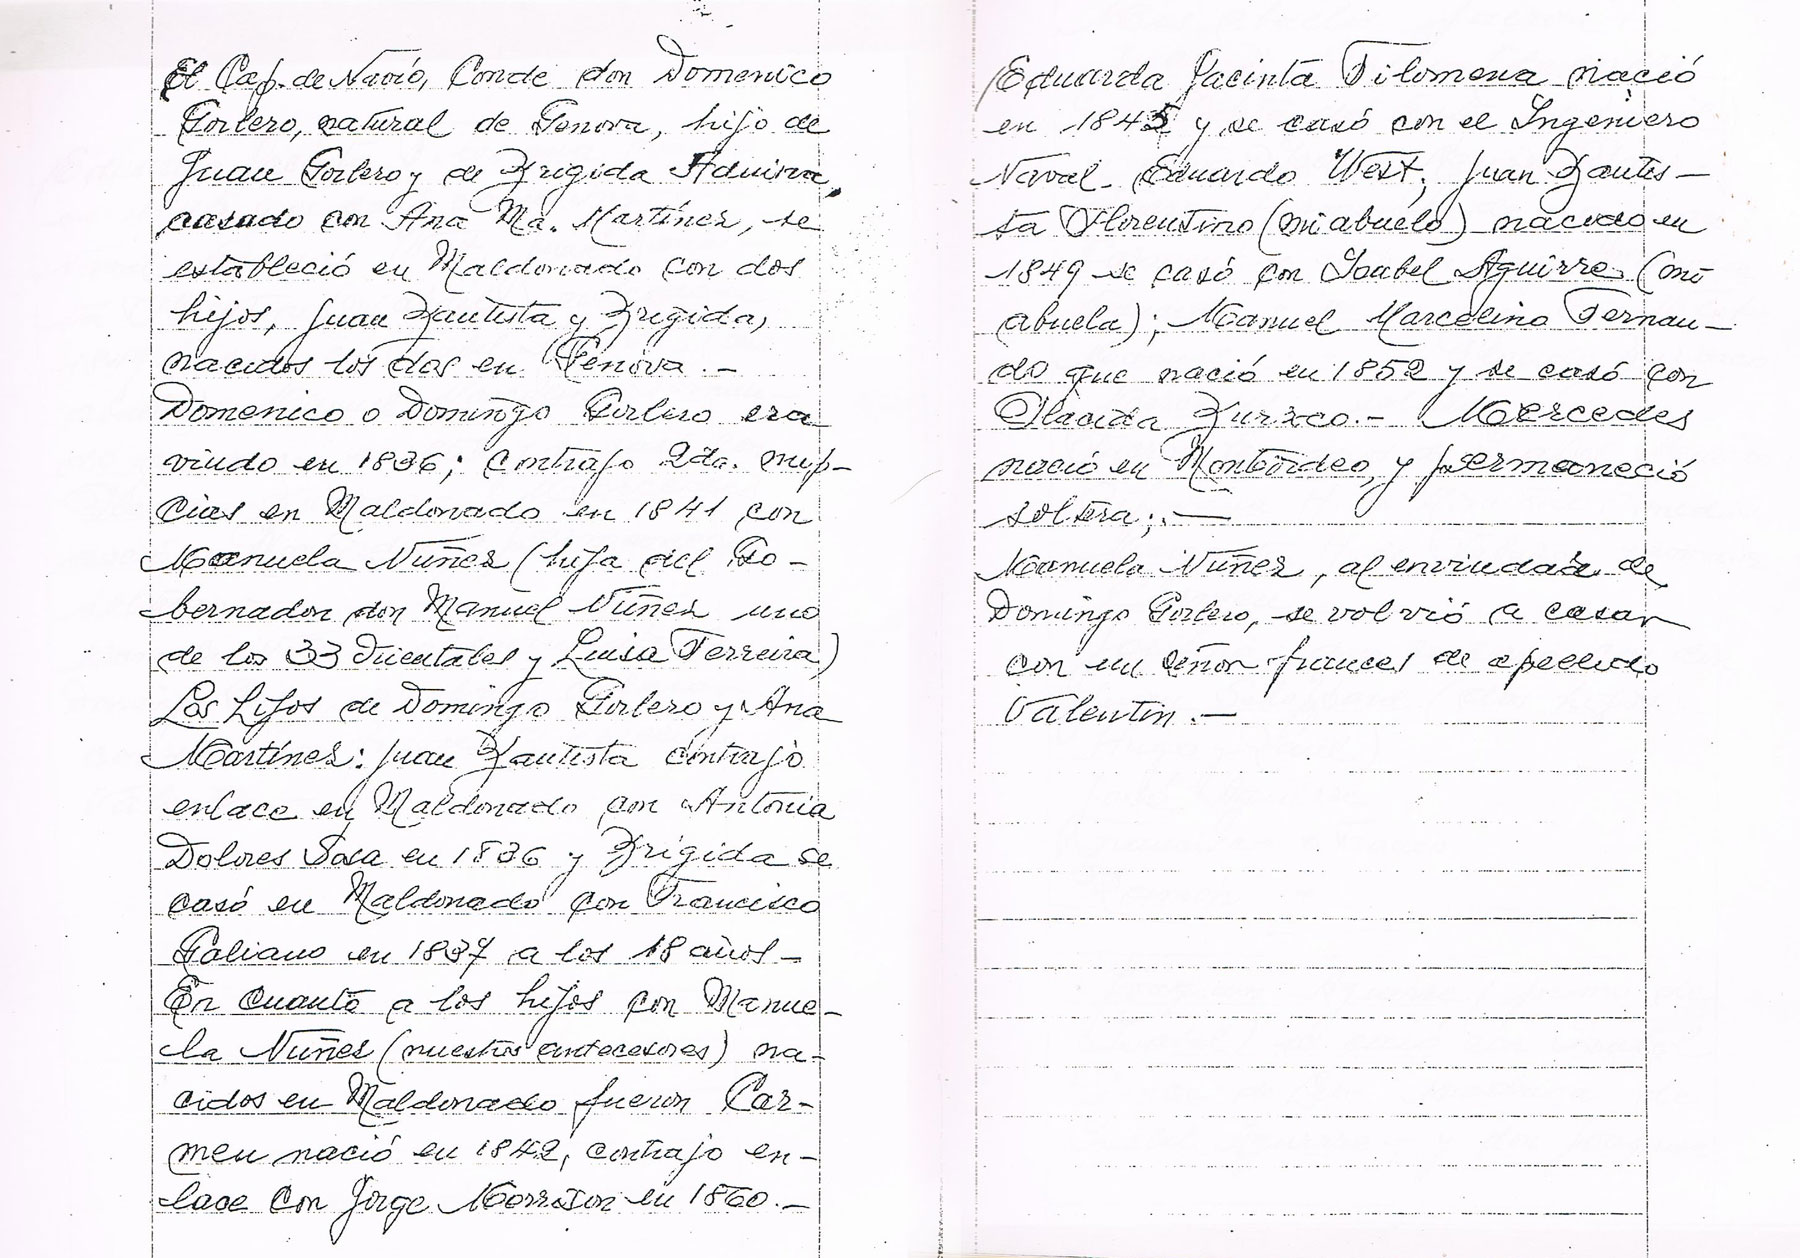 El Cap. de Navío, Conde don Domenico
Gorlero, natural de Genova, hijo de
Juan Gorlero y de Brigida
casado con Ana Ma. Martínez, se
estableció en Maldonado con dos
hijos, Juan Bautista y Brigida,
nacidos los dos en Genova.-
Domenico o Domingo Gorlero era
viudo en 1836; contrajo 2da. nup-
cias en Maldonado en 1841 con
Manuela Nuñez (hija del Go-
bernador don Manuel Nuñez uno
de los 33 Orientales y Luisa Ferreira)
Los hijos de Domingo Gorlero y Ana
Martínez: Juan Bautista contrajo
enlace en Maldonado con Antonia
Dolores Sosa en 1836 y Brigida se
casó en Maldonado con Francisco
Galiano en 1837 a los 18 años-
En cuanto a los hijos con Manue-
la Nuñez (nuestros antecesores) na-
cidos en Maldonado fueron Car-
men nació en 1842, contrajo en-
lace con Jorge Morrison en 1860.-
Eduarda Jacinta Filomena nació
en 1845 y se casó con el Ingeniero
Naval Eduardo West; Juan Bautis-
ta Florentino (mi abuelo) nacido en
1849 se casó con Isabel Aguirre (mi
abuela); Manuel Marcelino Fernan-
do que nació en 1852 y se casó con
Placida Zurxco.- Mercedes
nació en Montevideo, y permaneció
soltera;.-
Manuela Nuñez, al enviudar de
Domingo Gorlero, se volvió a casar
con un señor frances de apellido
Valentin.-